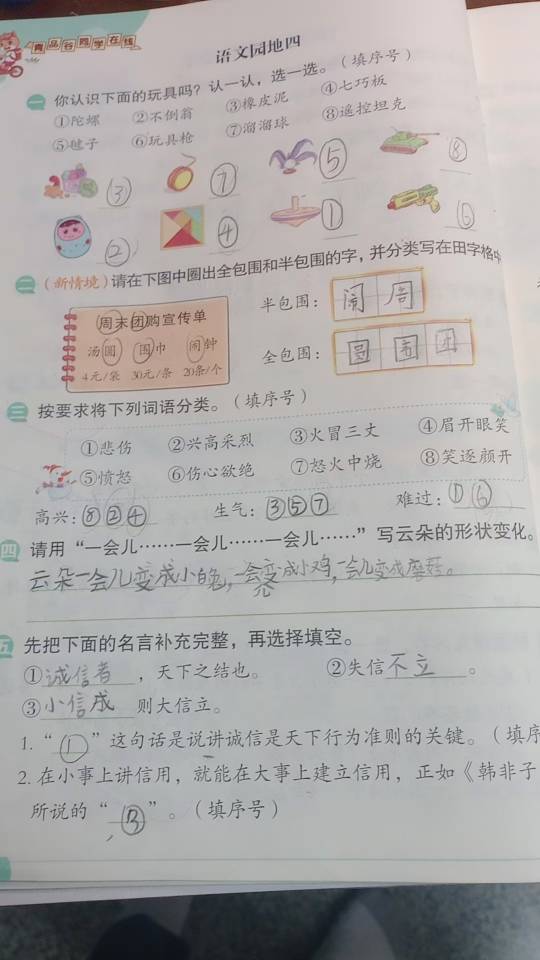 青品谷同学在线
语文园地四
一 你认识下面的玩具吗？认一认，选一选。（填序号）
①陀螺 ②不倒翁 ③橡皮泥 ④七巧板
⑤毽子 ⑥玩具枪 ⑦溜溜球 ⑧遥控坦克
③ ⑦ ⑤ ⑧
② ④ ① ⑥
二 （新情境）请在下图中圈出全包围和半包围的字，并分类写在田字格中
周末团购宣传单
汤圆 围巾 闹钟
4元/袋 30元/条 20条/个
半包围： 闹 周
全包围： 圆 围 团
三 按要求将下列词语分类。（填序号）
①悲伤 ②兴高采烈 ③火冒三丈 ④眉开眼笑
⑤愤怒 ⑥伤心欲绝 ⑦怒火中烧 ⑧笑逐颜开
高兴：⑧②④ 生气：③⑤⑦ 难过：①⑥
四 请用“一会儿……一会儿……一会儿……”写云朵的形状变化。
云朵一会儿变成小白兔，一会儿变成小鸡，一会儿变成蘑菇。
五 先把下面的名言补充完整，再选择填空。
①诚信者，天下之结也。 ②失信不立。
③小信成则大信立。
1.“①”这句话是说讲诚信是天下行为准则的关键。（填序
2.在小事上讲信用，就能在大事上建立信用，正如《韩非子
所说的“③”。（填序号）